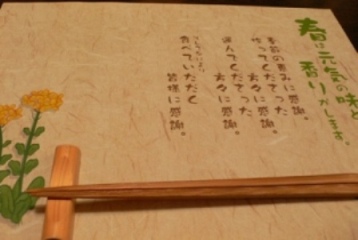 春は元気の味と
香りがします。
季節の恵みに感謝。
作ってくださった
方々に感謝。
運んでくださった
方々に感謝。
食べていただく
皆様に感謝。